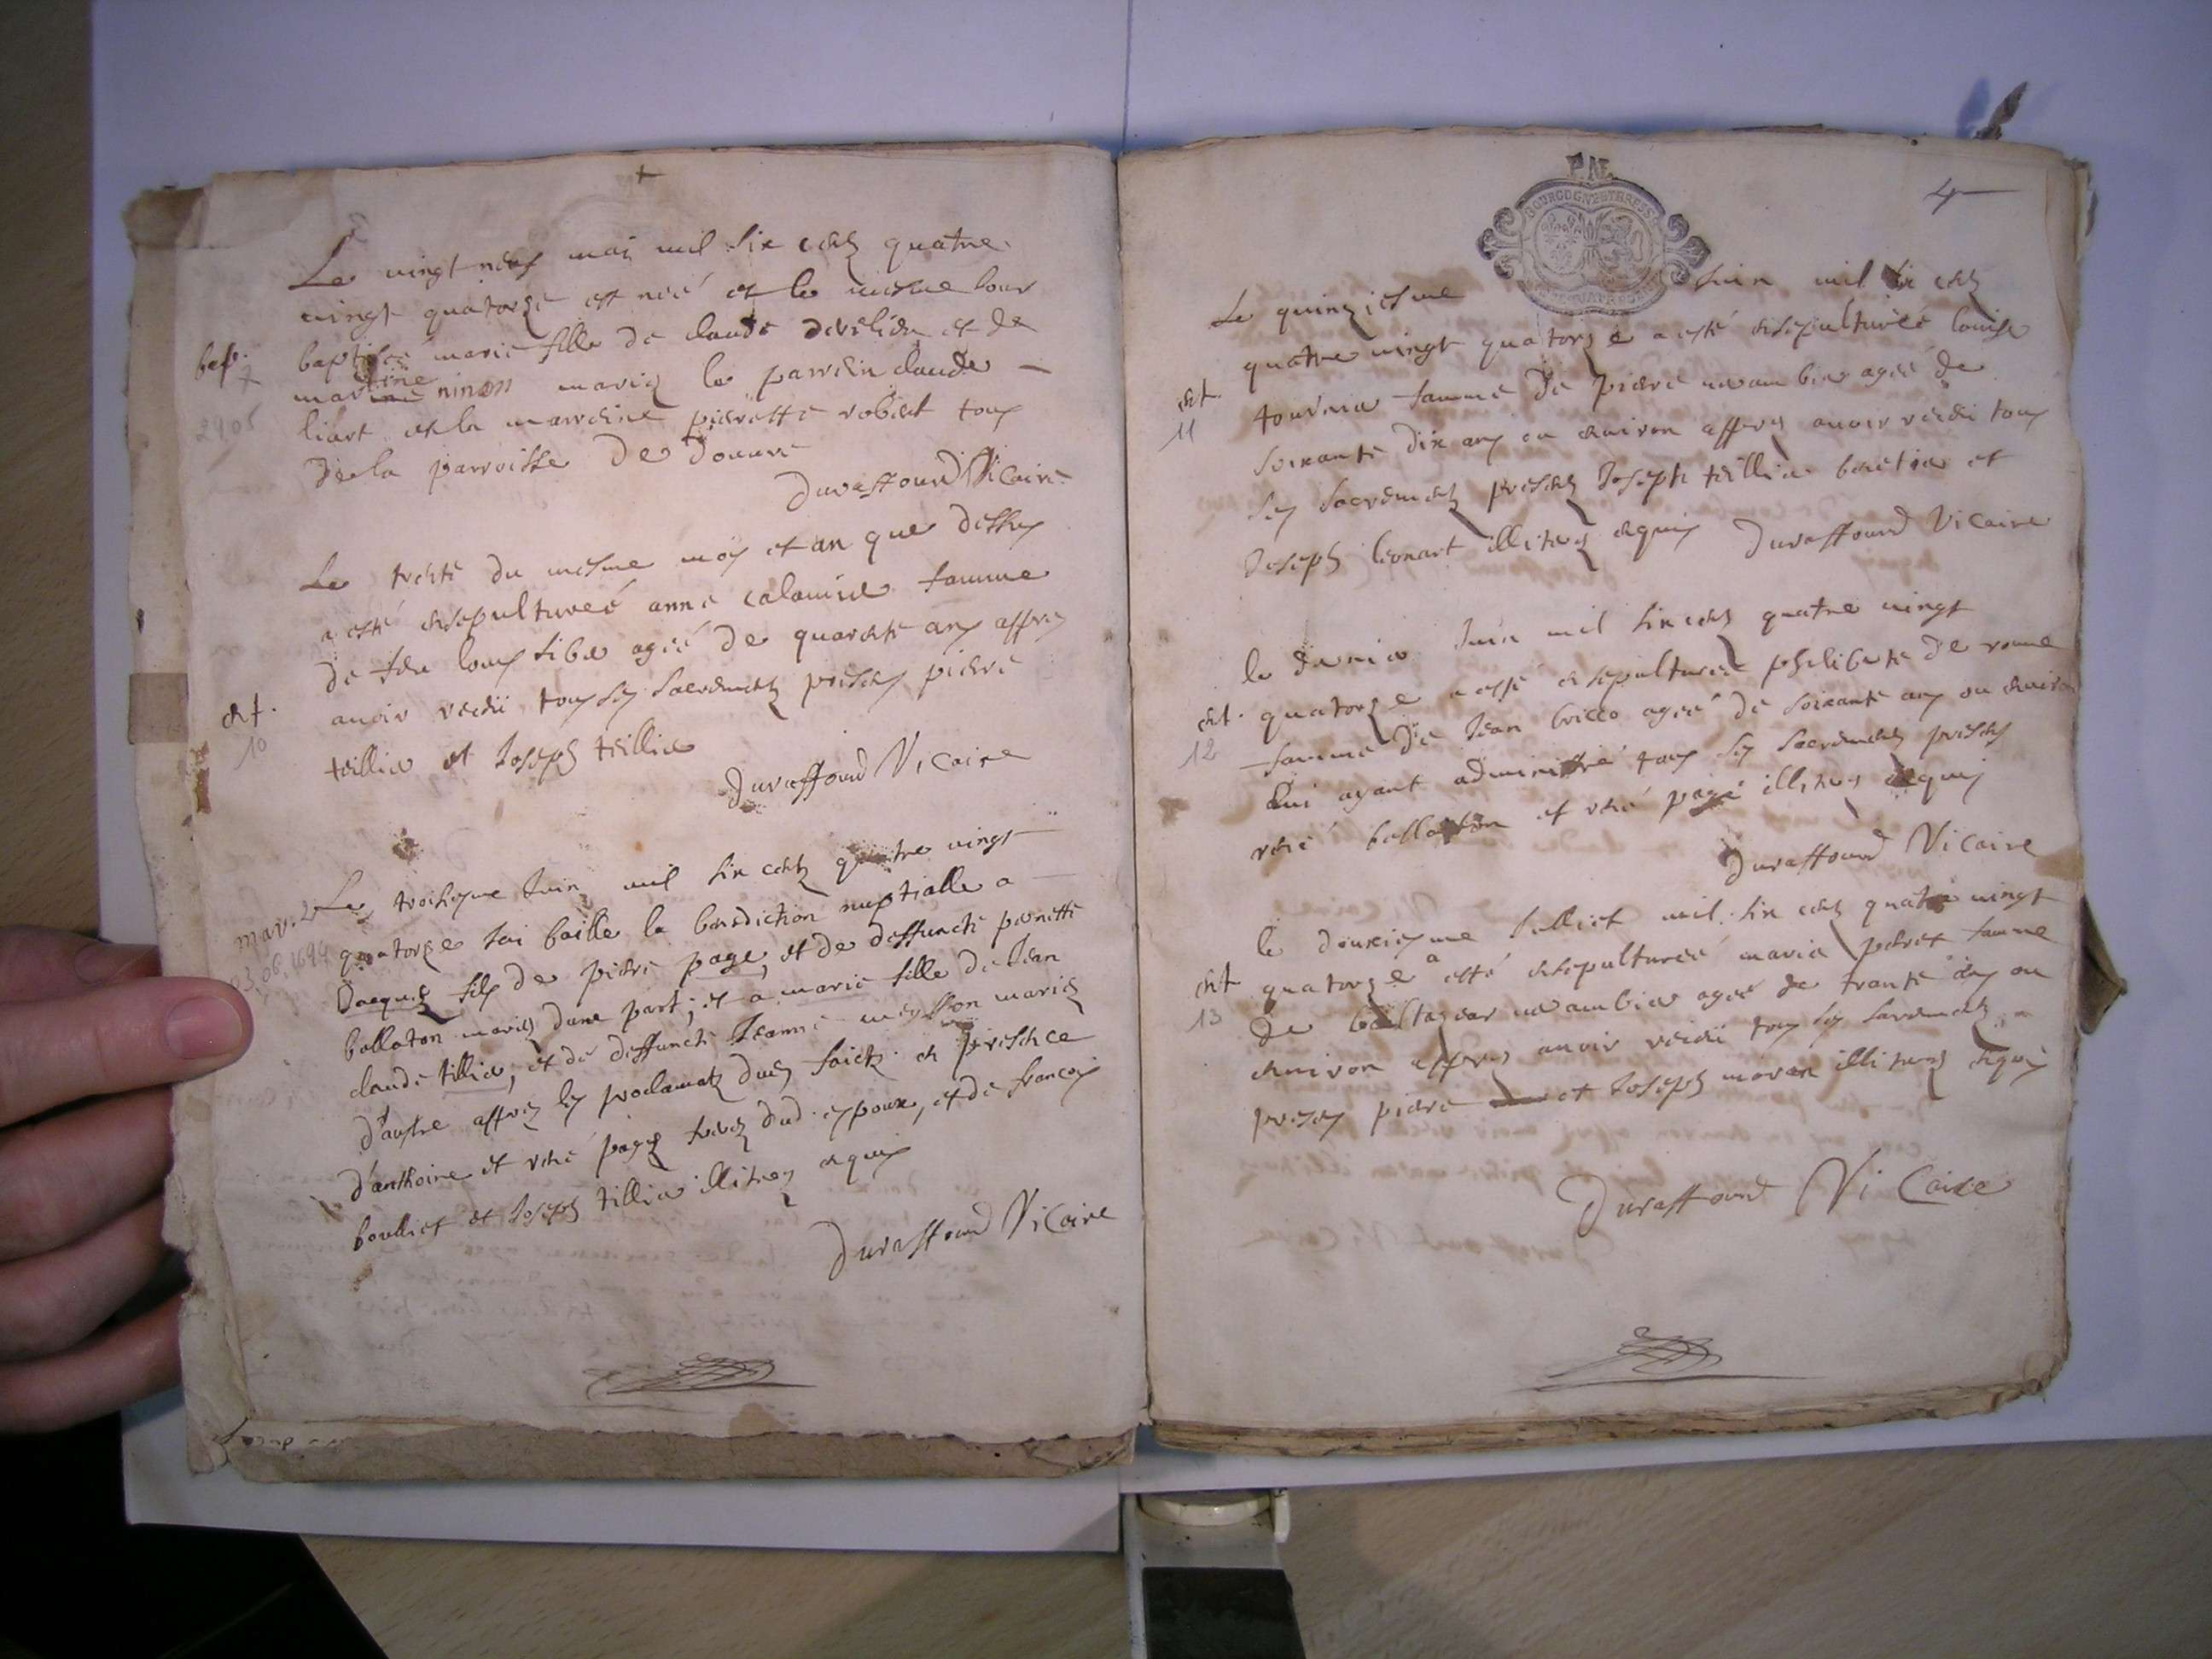 Le vingt neuf mai mil six cents quatre
vingt quatorze est neé et le mesme jour
bap.
baptiseé marie fille de claude et de
7
2905
tine
marine ninon mariez le parrein claude
liart et la marreine pierrette robert tous
de la parroisse de Douure
Duraffourd Vicaire
Le trente du mesme moy et an que dessus
a esté ensepultureé anne femme
de feu louys agéé de quarente ans appres
ent.
10
avoir receu tous ses sacrements presents pierre
tillier et Joseph tillier
Duraffourd Vicaire
mar. 2
03.06.1694
Le troisiesme Juin mil six cents quatre vingt
quatorze Jai baillé la benediction nuptialle a
Jacques fils de pierre page, et de deffuncte pernette
bollaton mariez d'une part; et a marie fille de Jean
claude tillier, et de deffuncte Jeanne mariez
d'austre appres les proclamats deues faicts en presence
d'anthoine et réné pages freres dud. espoux, et de francois
boulliet et Joseph tillier illitres enquis
Duraffourd Vicaire
4
BOURGOGNE ET BRESSE
Le quinziesme Juin mil six cents
quatre vingt quatorze a esté ensepultureé louise
ent
11
tournier famme de pierre agéé de
soixante dix ans ou environ appres avoir receu tous
ses sacrements presents Joseph tillier et
Joseph leonart illitres enquis Duraffourd Vicaire
le dernier Juin mil six cents quatre vingt
ent.
12
quatorze a esté ensepultureé philiberte de rome
famme de Jean bricco agéé de soixante ans ou environ
lui ayant administré tous ses sacrements presents
réné bollaton et réné page illitres enquis
Duraffourd Vicaire
le douziesme Julliet mil six cents quatre vingt
ent
13
quatorze a esté ensepultureé marie perret famme
de baltazar agéé de trante ans ou
environ appres avoir receu tous ses sacrements
presens pierre et Joseph moren illitres enquis
Duraffourd Vicaire